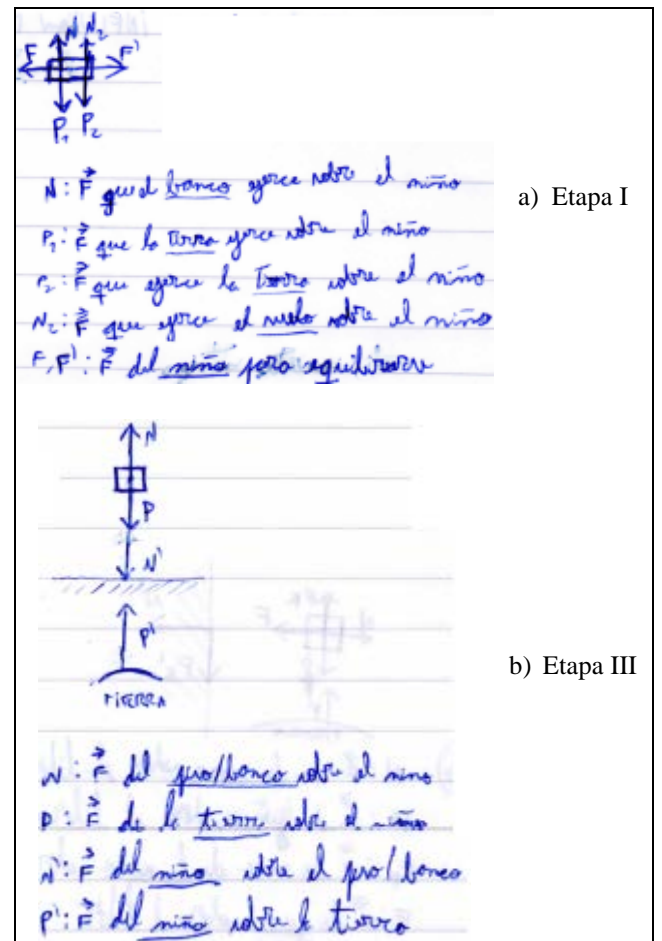 N N₂
F F'
P₁ P₂
N: F⃗ que el banco ejerce sobre el niño
P₁: F⃗ que la Tierra ejerce sobre el niño
P₂: F⃗ que ejerce la Tierra sobre el niño
N₂: F⃗ que ejerce el suelo sobre el niño
F, F': F⃗ del niño para equilibrarse
a) Etapa I
N
P
N'
P'
TIERRA
b) Etapa III
N: F⃗ del piso/banco sobre el niño
P: F⃗ de la tierra sobre el niño
N': F⃗ del niño sobre el piso/banco
P': F⃗ del niño sobre la tierra